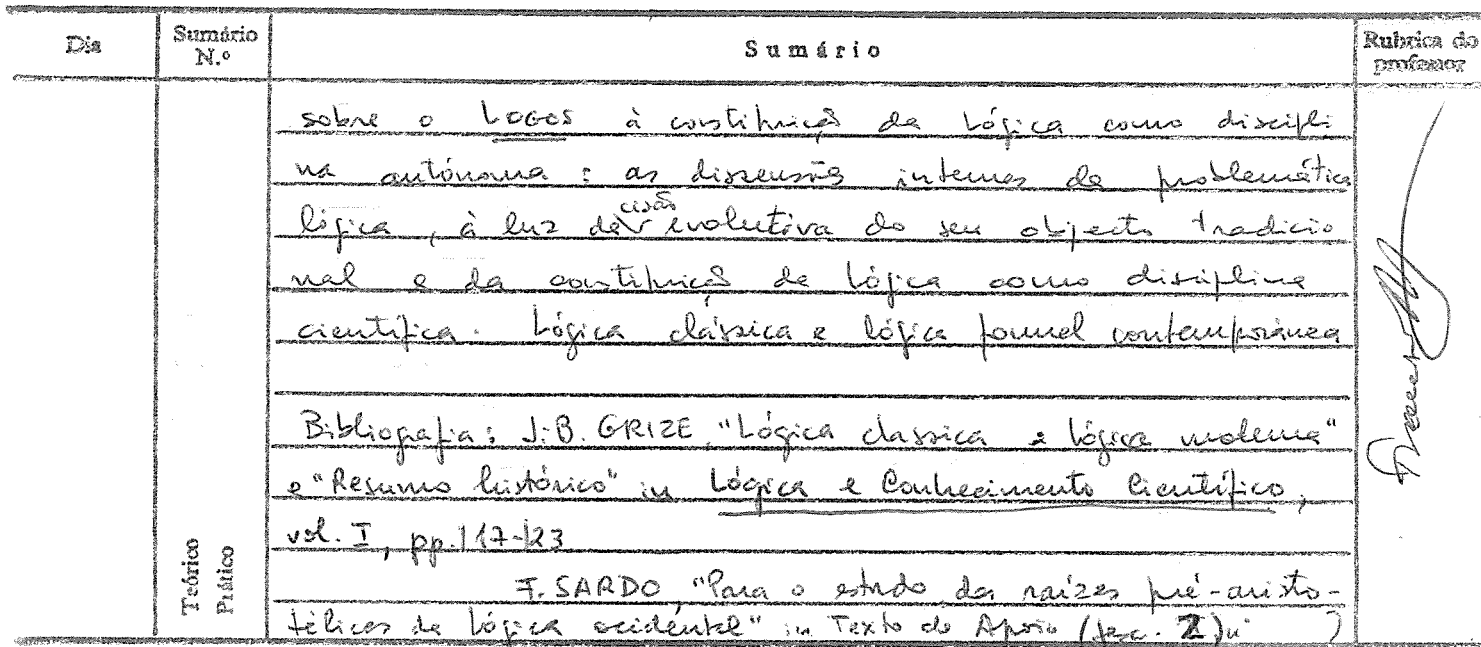 Dia
Sumário N.º
Sumário
Rubrica do professor
sobre o LOGOS à constituição da Lógica como discipli
na autónoma : as dissensões internas da problemática
lógica, à luz da cisão evolutiva do seu objecto tradicio
nal e da constituição da lógica como disciplina
científica. Lógica clássica e lógica formal contemporânea
Bibliografia: J.B. GRIZE, "Lógica classica e lógica moderna"
e "Resumo histórico" in Lógica e Conhecimento Científico,
vol. I, pp. 117-123
F. SARDO, "Para o estudo das raízes pré-aristo-
télicas da lógica ocidental" in Texto de Apoio (fasc. 2)
Teórico
Prático